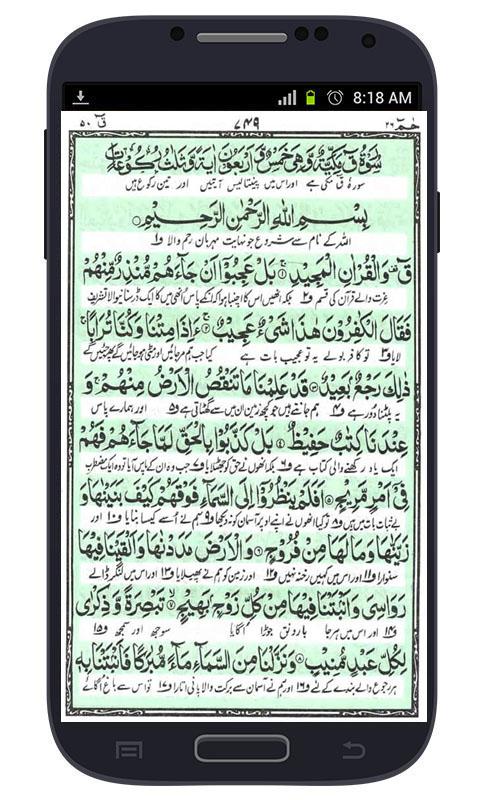 8:18 AM
قۤ ۵۰
۷۴۹
حٰمٓ ۲۶
سُوْرَةُ قٓ مَكِّيَّةٌ وَّهِيَ خَمْسٌ وَّاَرْبَعُوْنَ اٰيَةً وَّثَلٰثُ رُكُوْعَاتٍ
سورہ ق مکی ہے اور اس میں پینتالیس آیتیں اور تین رکوع ہیں
بِسْمِ اللّٰهِ الرَّحْمٰنِ الرَّحِيْمِ
اللہ کے نام سے شروع جو نہایت مہربان رحم والا ف۱
قٓ ۚ وَالْقُرْاٰنِ الْمَجِيْدِ ۚ بَلْ عَجِبُوْٓا اَنْ جَآءَهُمْ مُّنْذِرٌ مِّنْهُمْ
عزت والے قرآن کی قسم ف۲ بلکہ انھیں اس کا اچنبا ہوا کہ انکے پاس انھی میں کا ایک ڈر سنانیوالا تشریف
فَقَالَ الْكٰفِرُوْنَ هٰذَا شَىْءٌ عَجِيْبٌ ۚ ءَاِذَا مِتْنَا وَكُنَّا تُرَابًا ۚ
لایا ف۳ تو کافر بولے یہ تو عجیب بات ہے کیا جب ہم مرجائیں اور مٹی ہوجائیں گے پھر جئیں گے
ذٰلِكَ رَجْعٌۢ بَعِيْدٌ ۞ قَدْ عَلِمْنَا مَا تَنْقُصُ الْاَرْضُ مِنْهُمْ ۚ وَ
یہ پلٹنا دور ہے ف۴ ہم جانتے ہیں جو کچھ زمین ان میں سے گھٹاتی ہے ف۵ اور ہمارے پاس
عِنْدَنَا كِتٰبٌ حَفِيْظٌ ۞ بَلْ كَذَّبُوْا بِالْحَقِّ لَمَّا جَآءَهُمْ فَهُمْ
ایک یاد رکھنے والی کتاب ہے ف۶ بلکہ انھوں نے حق کو جھٹلایا ف۷ جب وہ ان کے پاس آیا تو وہ ایک مضطرب
فِىْٓ اَمْرٍ مَّرِيْجٍ ۞ اَفَلَمْ يَنْظُرُوْٓا اِلَى السَّمَآءِ فَوْقَهُمْ كَيْفَ بَنَيْنٰهَا وَ
بے ثبات بات میں ہیں ف۸ تو کیا انھوں نے اپنے اوپر آسمان کو نہ دیکھا ف۹ ہم نے اُسے کیسا بنایا ف۱۰ اور
زَيَّنّٰهَا وَمَا لَهَا مِنْ فُرُوْجٍ ۞ وَالْاَرْضَ مَدَدْنٰهَا وَاَلْقَيْنَا فِيْهَا
سنوارا ف۱۱ اور اس میں کہیں رخنہ نہیں ف۱۲ اور زمین کو ہم نے پھیلایا ف۱۳ اور اس میں لنگر ڈالے
رَوَاسِىَ وَاَنْۢبَتْنَا فِيْهَا مِنْ كُلِّ زَوْجٍۢ بَهِيْجٍ ۙ تَبْصِرَةً وَّذِكْرٰى
ف۱۴ اور اس میں ہر جا بارونق جوڑا اگایا سوجھ اور سمجھ ف۱۵
لِكُلِّ عَبْدٍ مُّنِيْبٍ ۞ وَنَزَّلْنَا مِنَ السَّمَآءِ مَآءً مُّبٰرَكًا فَاَنْۢبَتْنَا بِهٖ
ہر رجوع والے بندے کے لئے ف۱۶ اور ہم نے آسمان سے برکت والا پانی اتارا ف۱۷ تو اس سے باغ اگائے